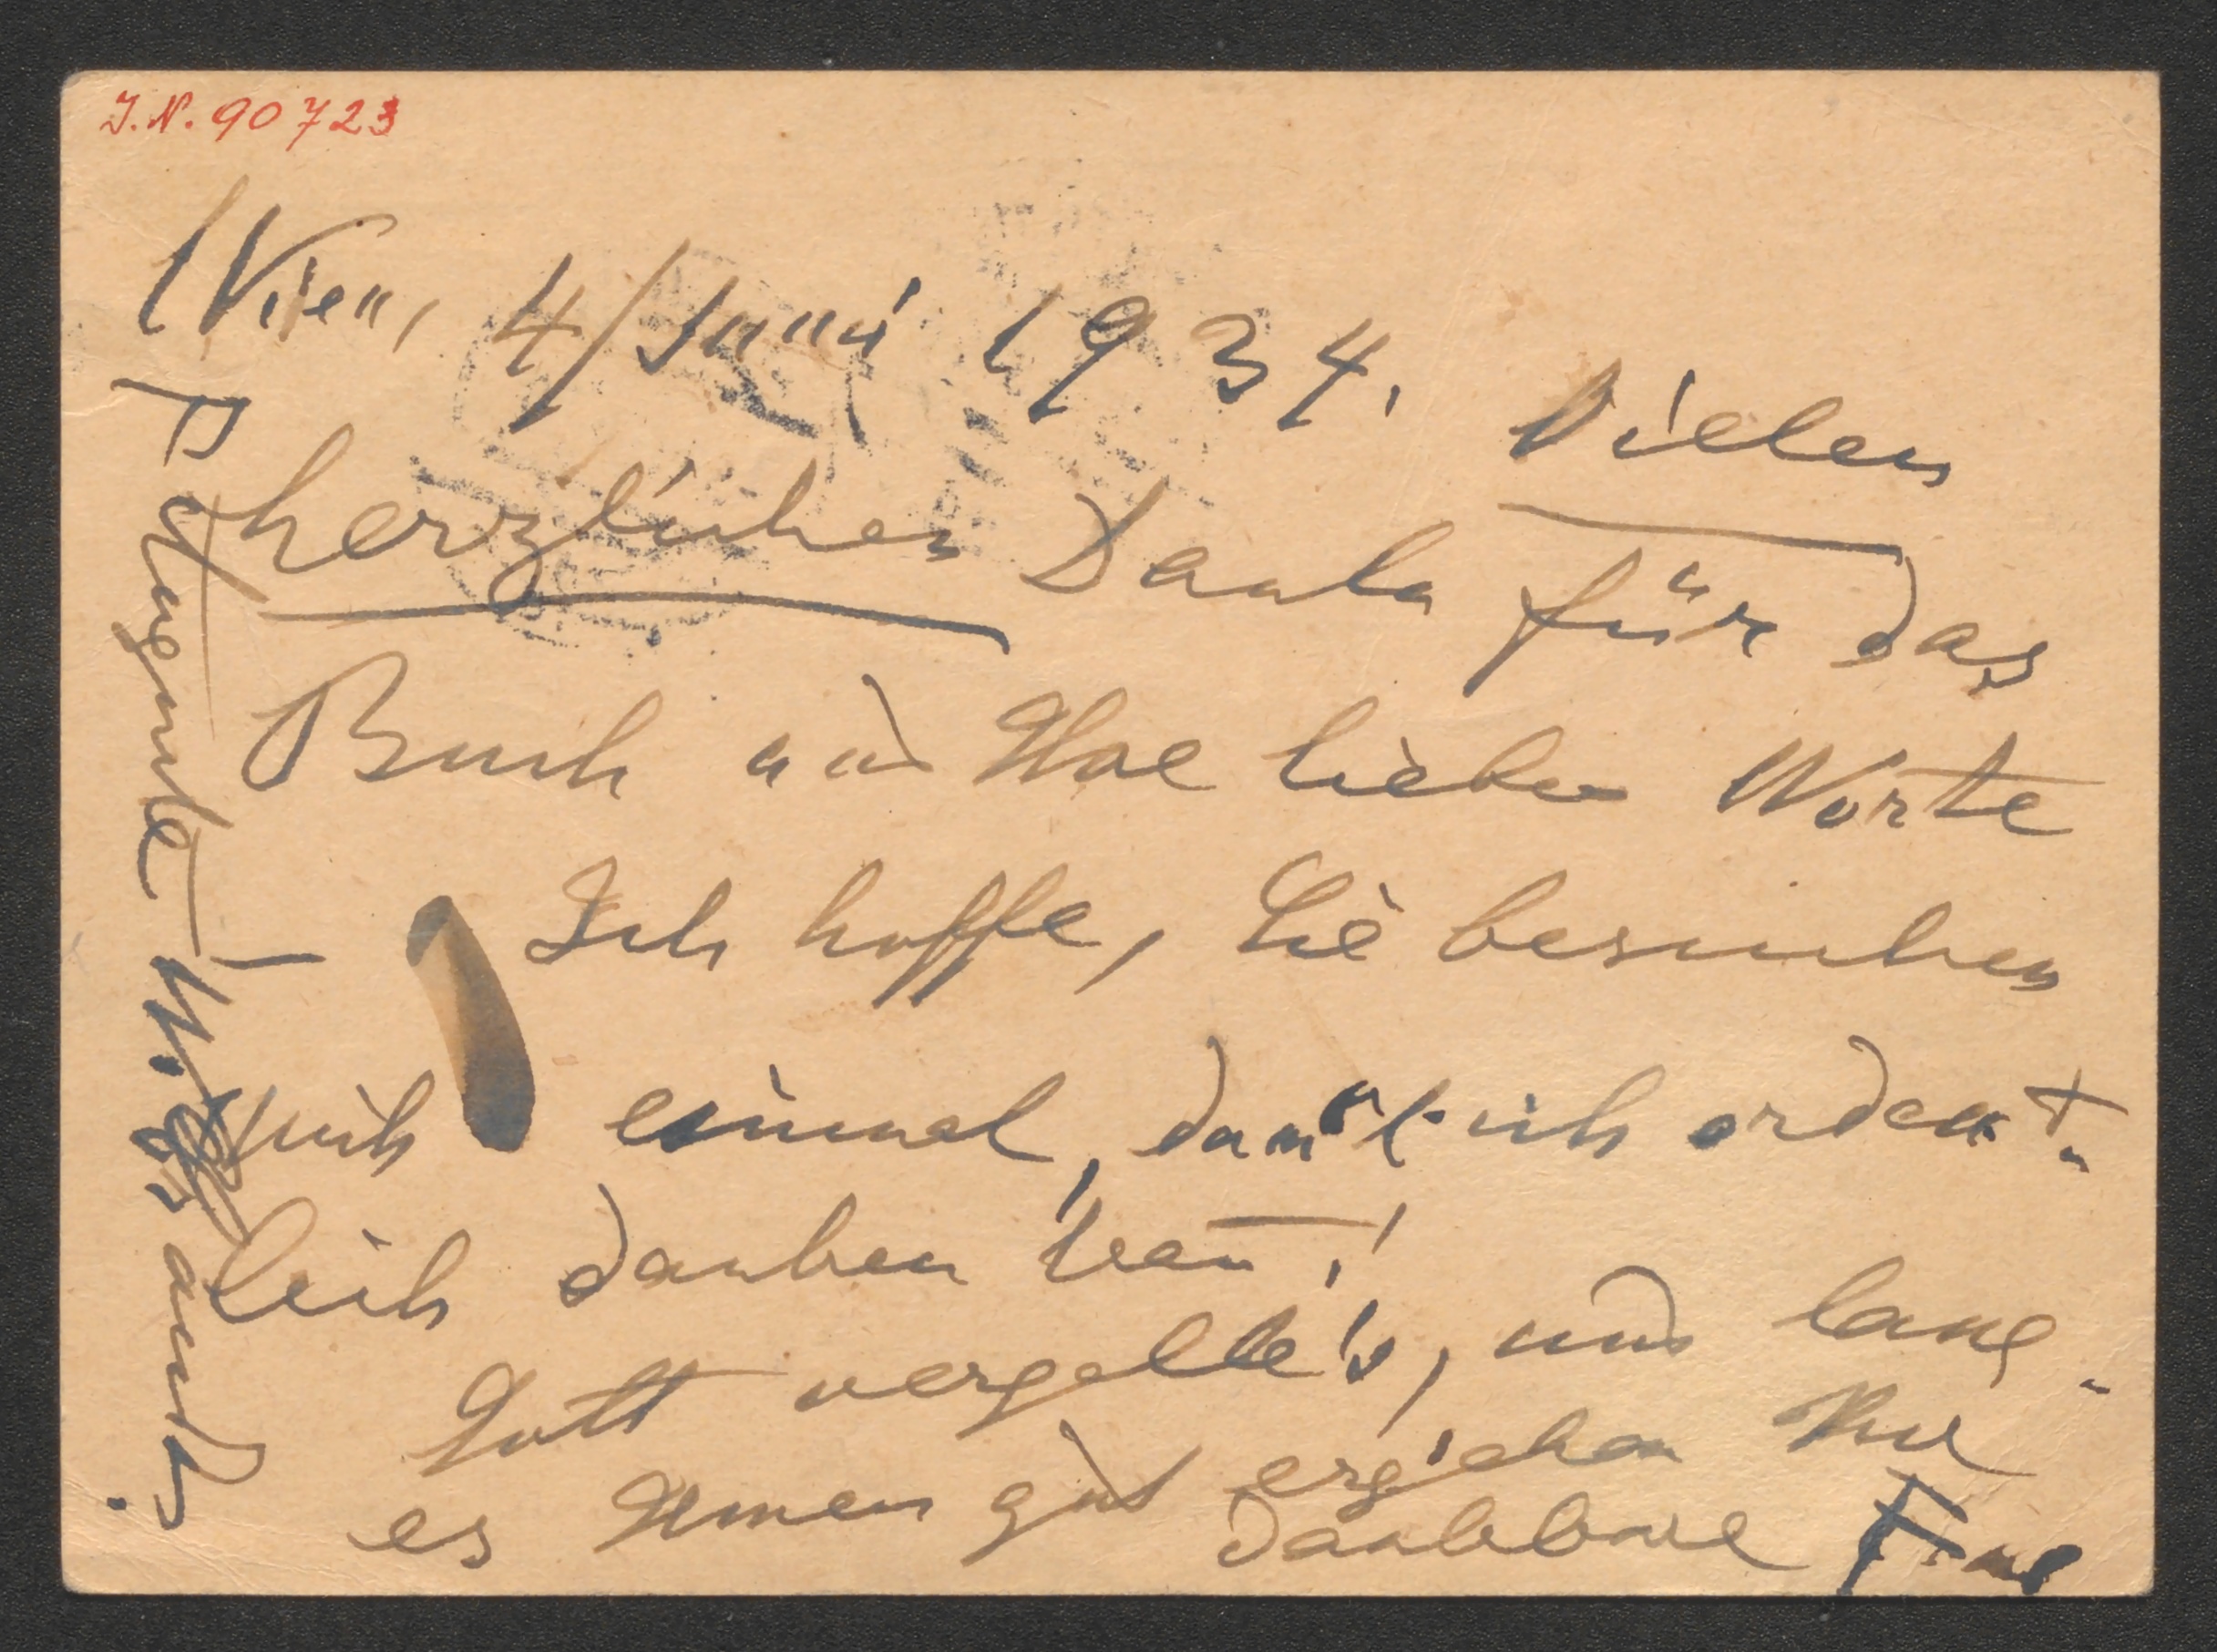 J.N. 90723
Wien, 4/Juni 1934. Vielen
herzlichen Dank für das
Buch und Ihre lieben Worte
Ich hoffe, Sie besuchen
mich einmal, damit ich ordent-
lich danken kan̄!
Gott vergelte's, und lang-
es Ihnen gut ergehen Ihre
dankbare
auch.